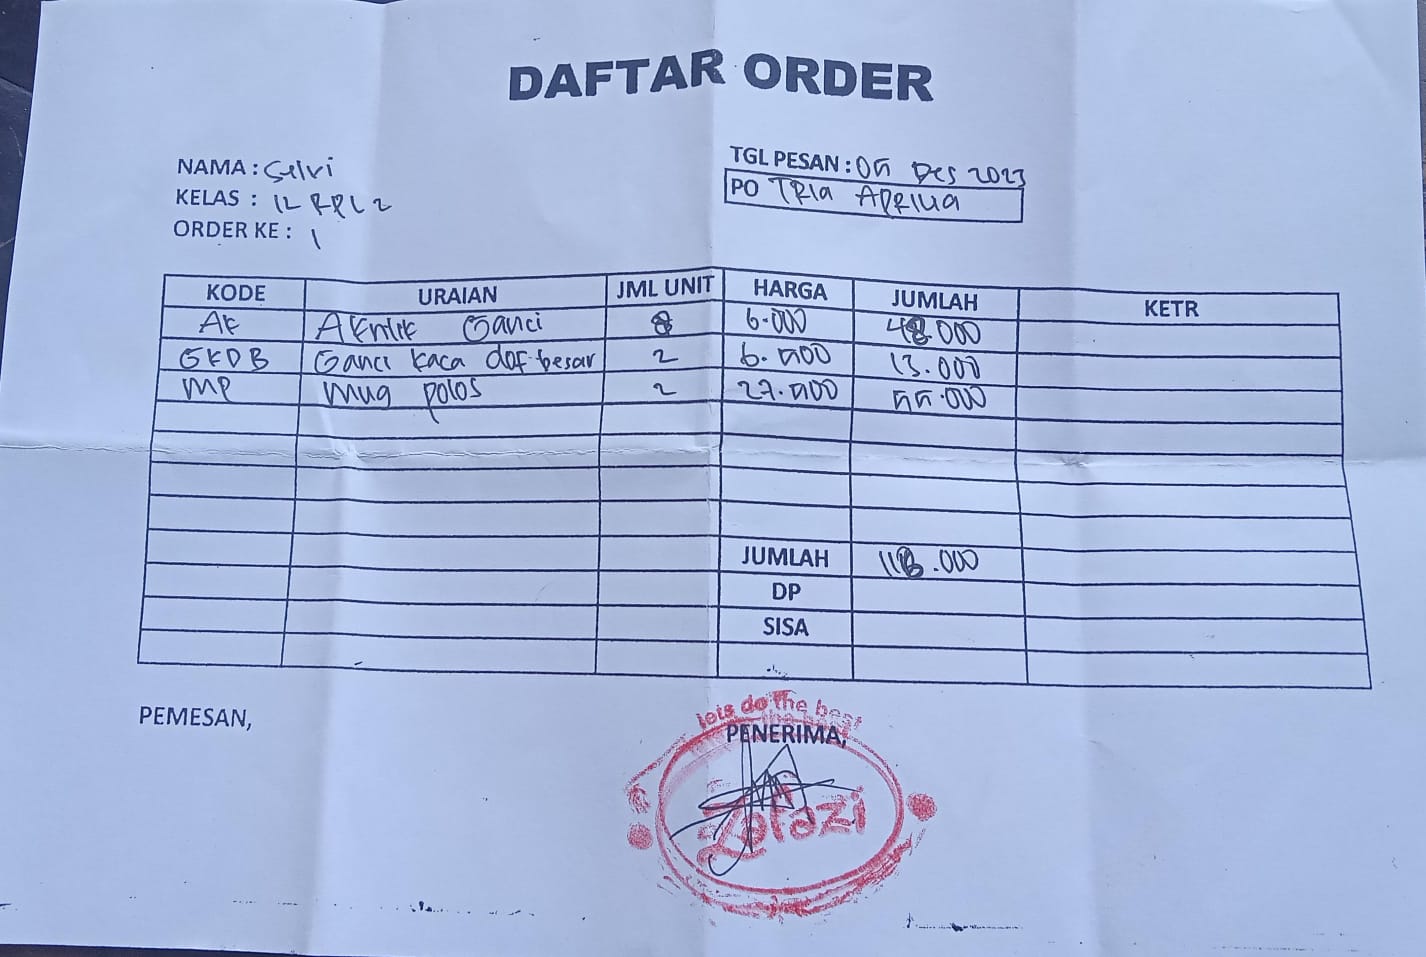 DAFTAR ORDER
NAMA : Selvi
KELAS : 12 RPL 2
ORDER KE : 1
TGL PESAN : 05 Des 2023
PO TRIa APRIlia
KODE URAIAN JML UNIT HARGA JUMLAH KETR
AK Akrilik Ganci 8 6.000 48.000
GKDB Ganci kaca dof besar 2 6.500 13.000
MP Mug polos 2 27.500 55.000
JUMLAH 116.000
DP
SISA
PEMESAN,
lets do the best
PENERIMA,